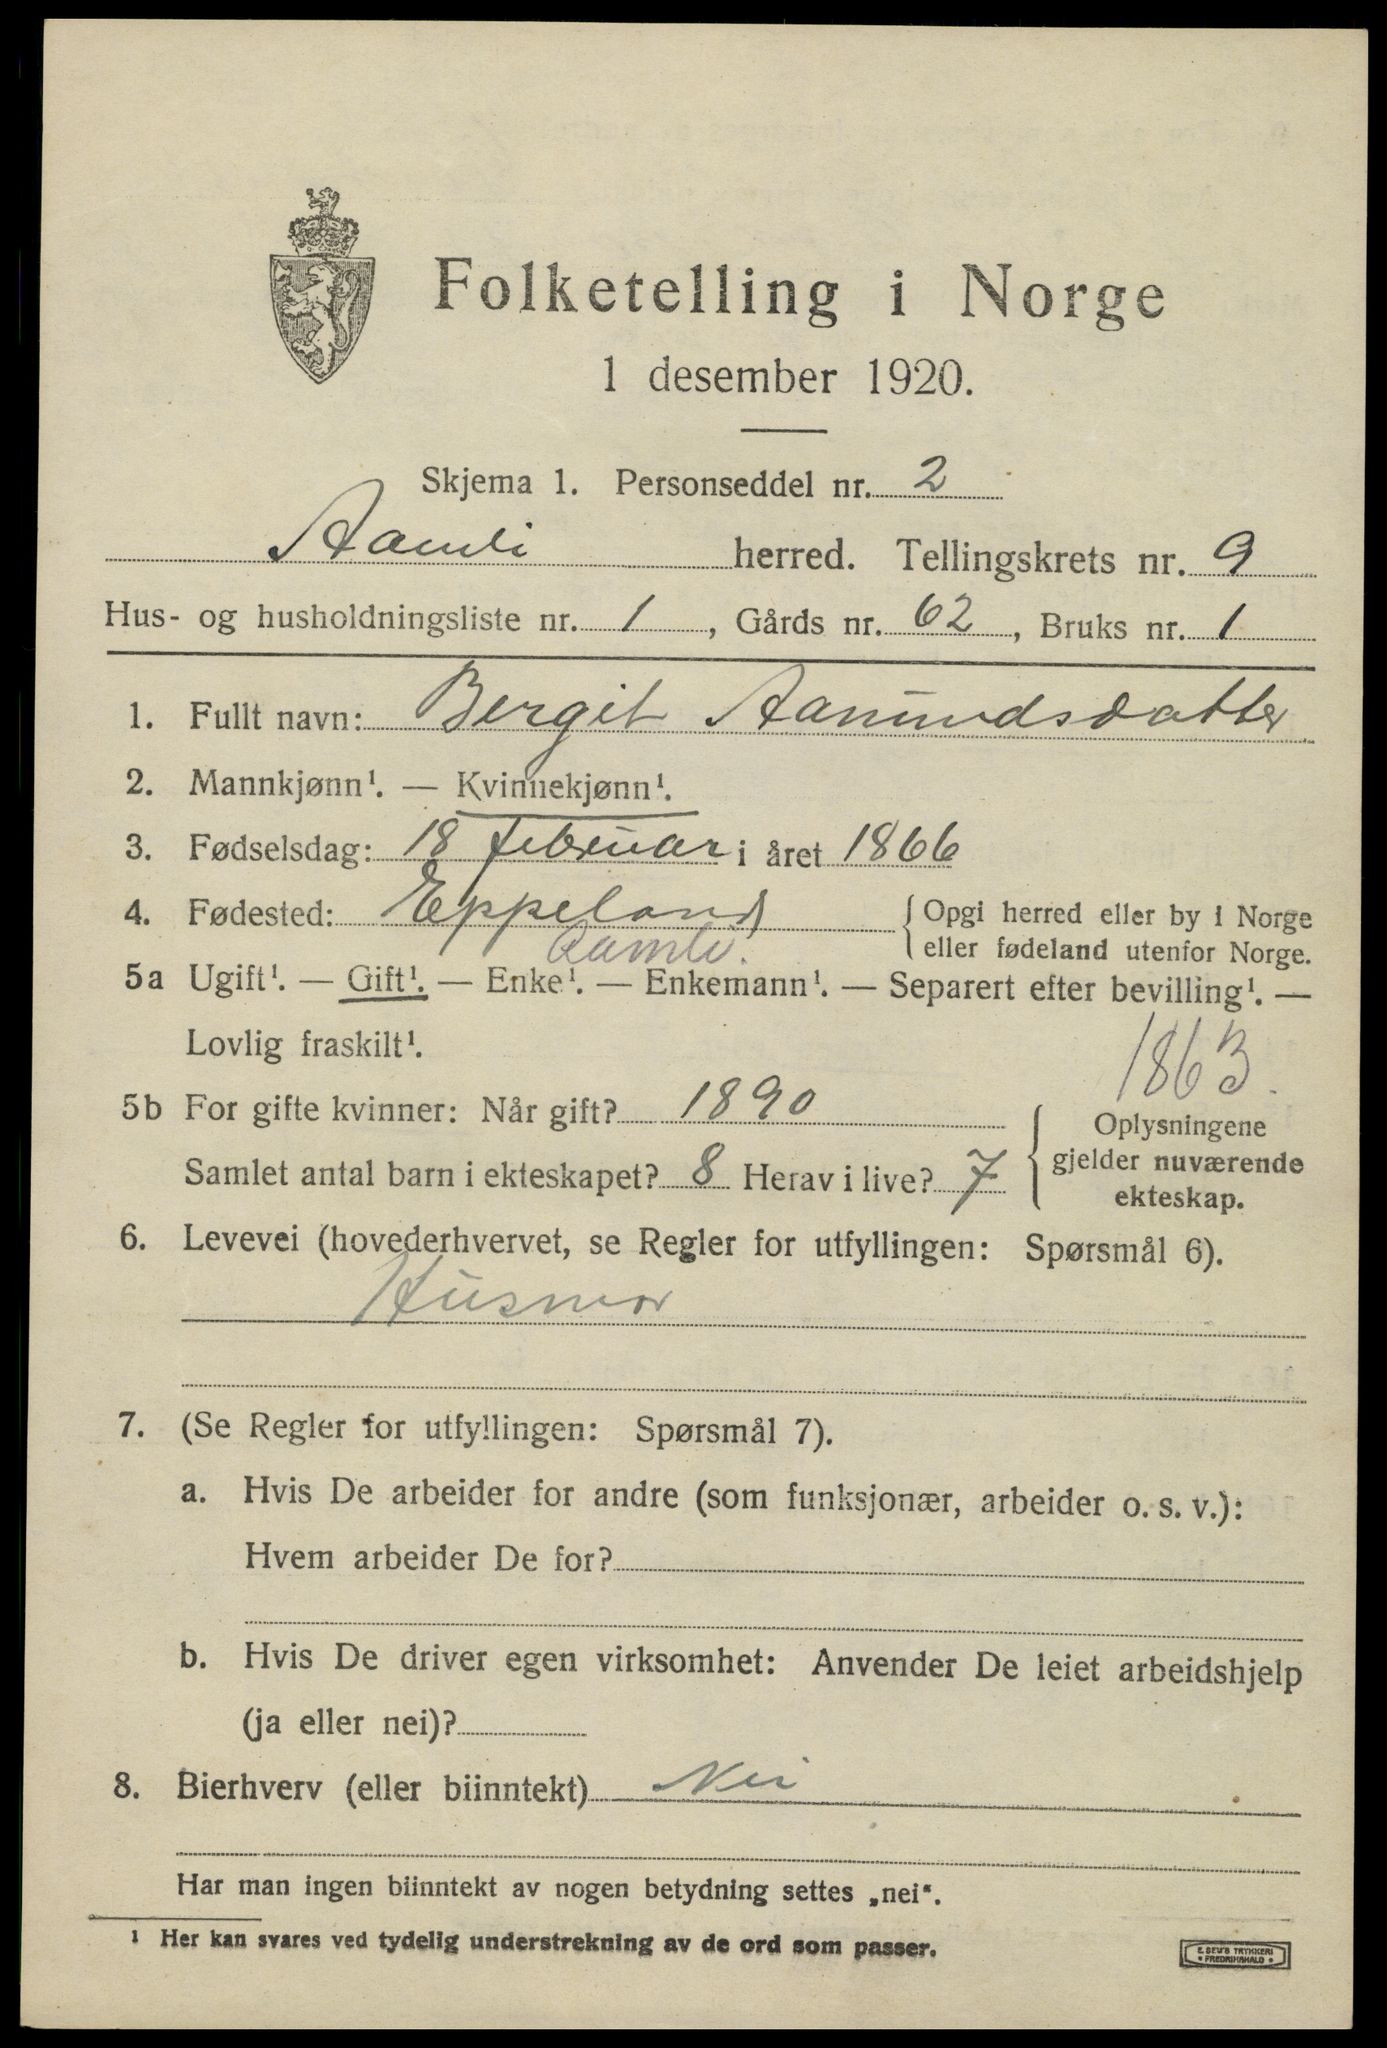 Folketelling i Norge
1 desember 1920.
Skjema 1. Personseddel nr. 2
Aamli herred. Tellingskrets nr. 9
Hus- og husholdningsliste nr. 1, Gårds nr. 62, Bruks nr. 1
1. Fullt navn: Bergit Aanundsdatter
2. Mannkjønn¹. — Kvinnekjønn¹.
3. Fødselsdag: 18 februar i året 1866
4. Fødested: Eppeland {Opgi herred eller by i Norge
eller fødeland utenfor Norge.
Aamli.
5a Ugift¹. — Gift¹. — Enke¹. — Enkemann¹. — Separert efter bevilling¹. —
Lovlig fraskilt¹.
1863.
5b For gifte kvinner: Når gift? 1890
Samlet antal barn i ekteskapet? 8 Herav i live? 7
Oplysningene
gjelder nuværende
ekteskap.
6. Levevei (hovederhvervet, se Regler for utfyllingen: Spørsmål 6).
Husmor
7. (Se Regler for utfyllingen: Spørsmål 7).
a. Hvis De arbeider for andre (som funksjonær, arbeider o. s. v.):
Hvem arbeider De for?
b. Hvis De driver egen virksomhet: Anvender De leiet arbeidshjelp
(ja eller nei)?
8. Bierhverv (eller biinntekt) Nei
Har man ingen biinntekt av nogen betydning settes „nei“.
¹ Her kan svares ved tydelig understrekning av de ord som passer.
E. SEM'S TRYKKERI
• FREDRIKSHALD •